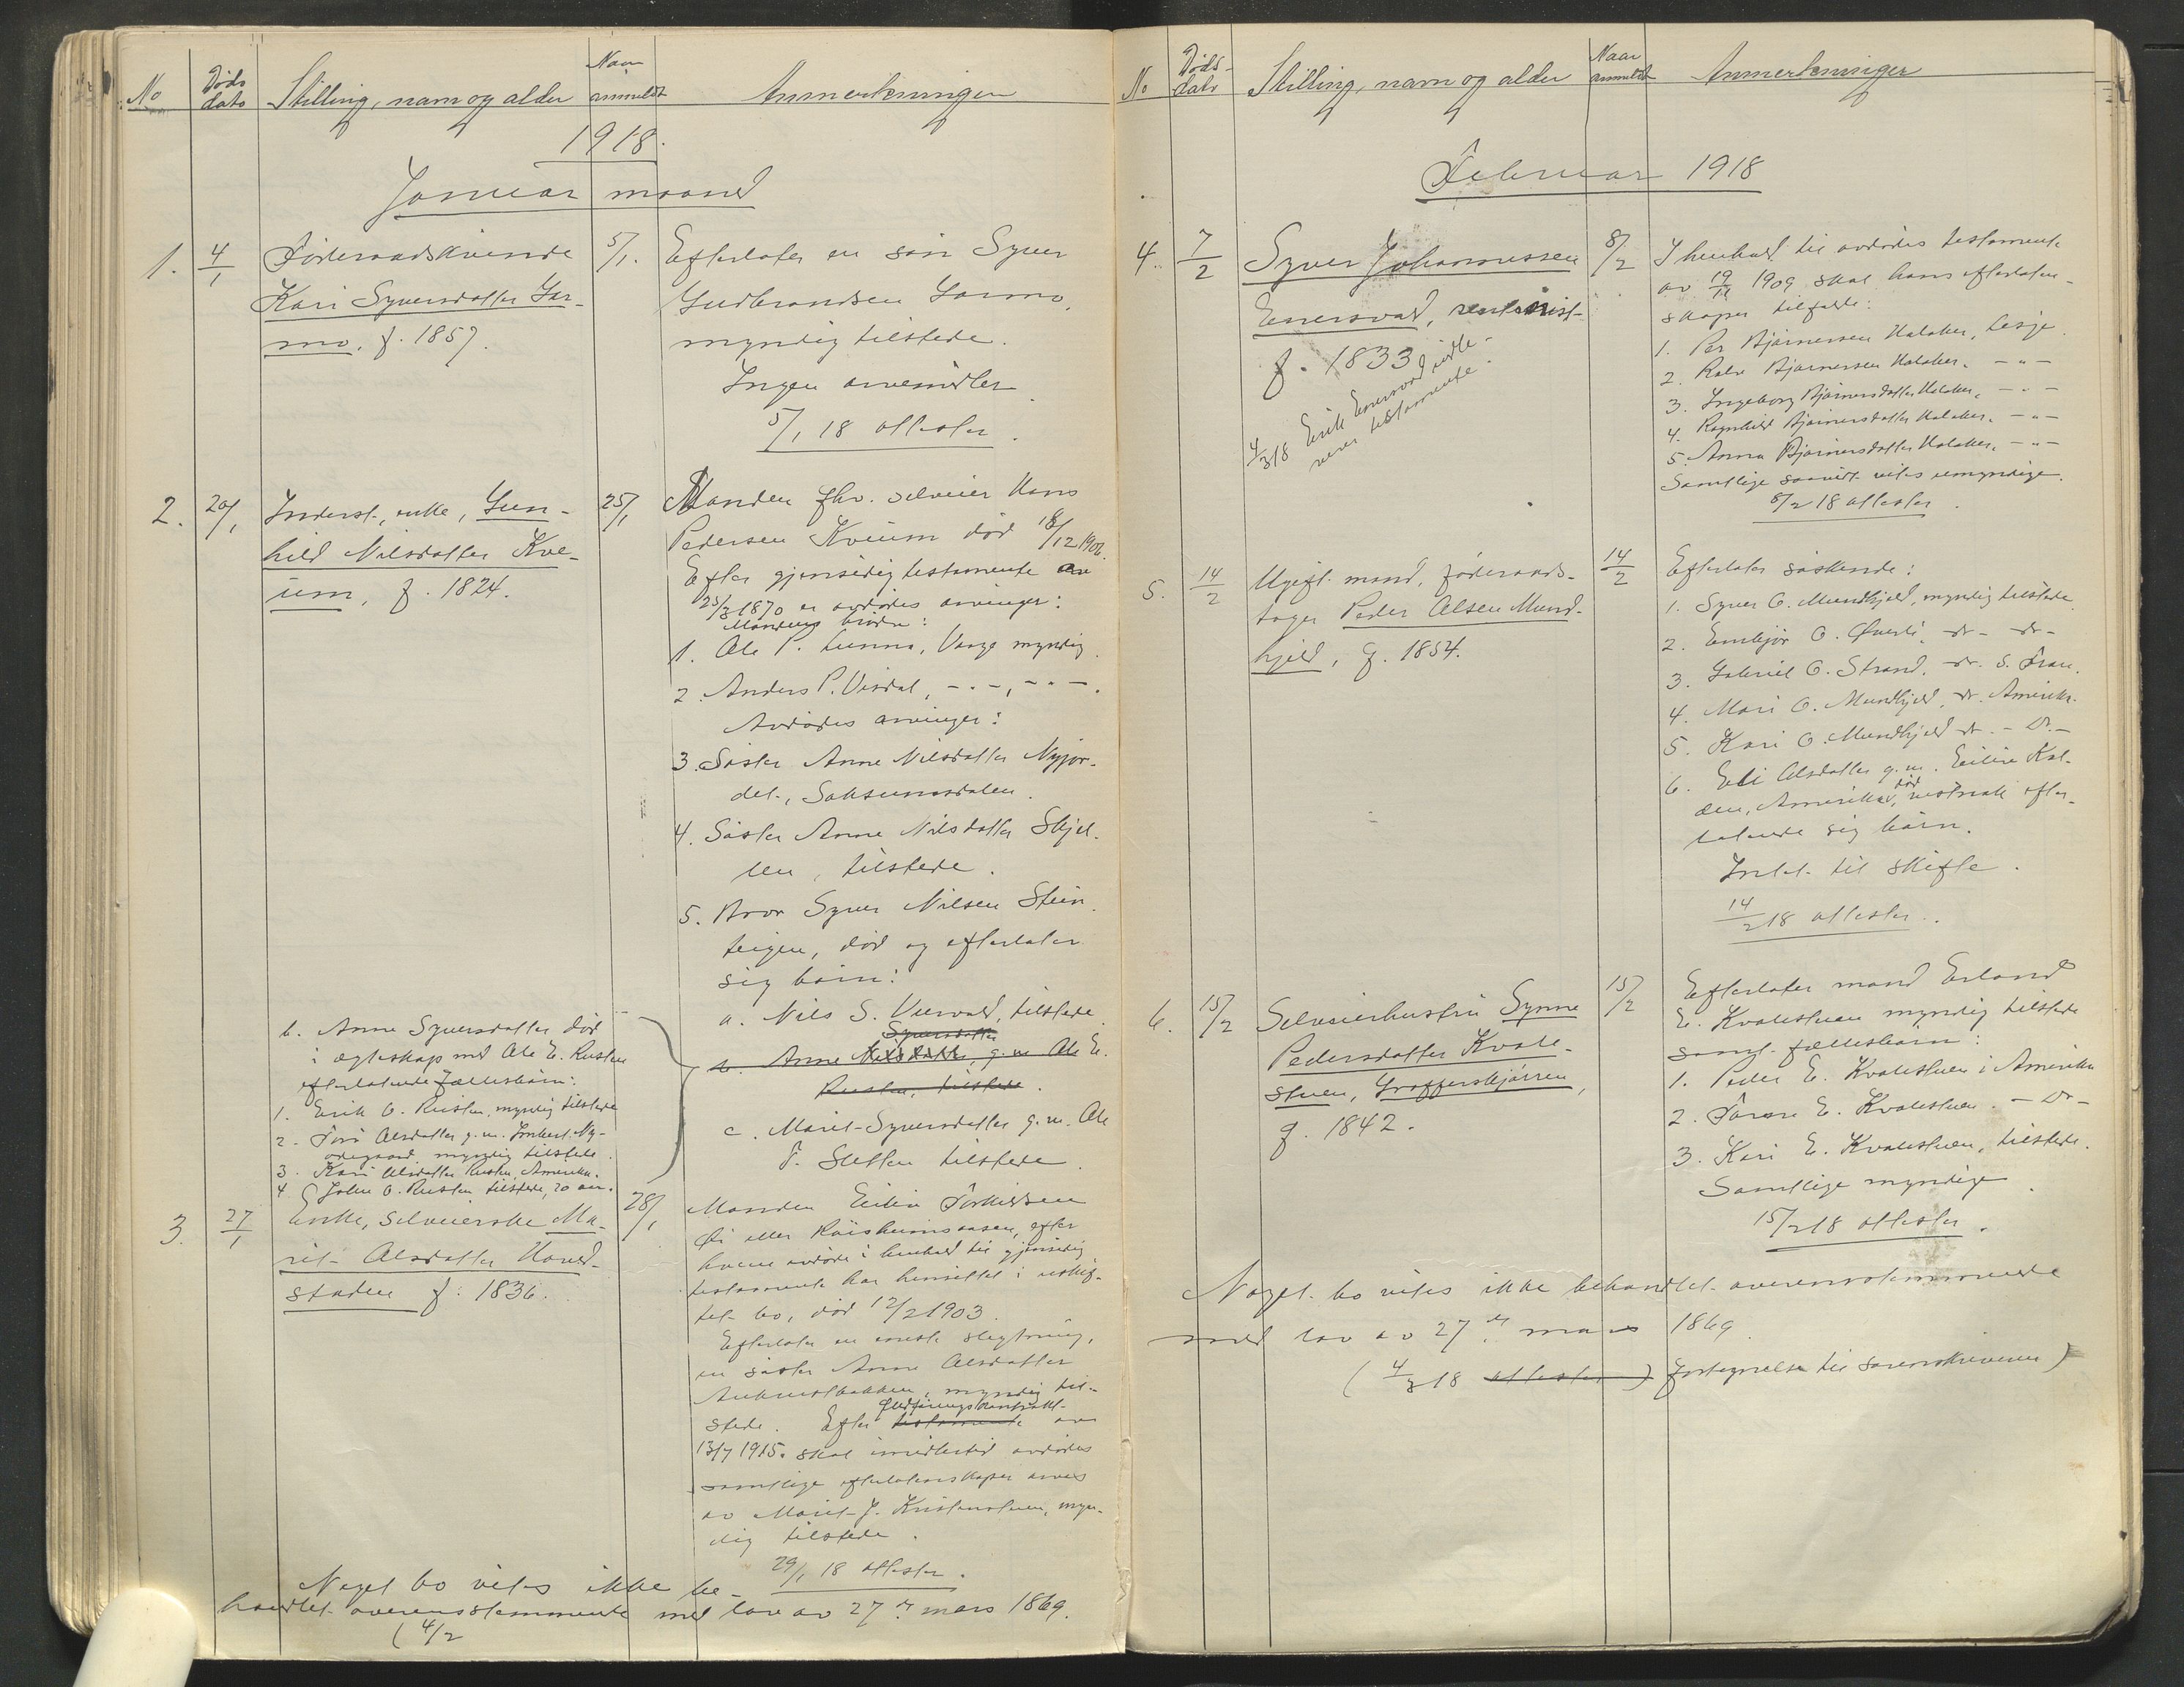 No
Døds
dato
Stilling, navn og alder
Naar
anmeldt
Anmerkninger
1918.
Januar maaned
1.
4/1
Føderaadskvinde
Kari Syversdatter Gar-
mo, f. 1857.
5/1.
Efterlater en søn Syver
Gudbrandsen Garmo,
myndig tilstede.
Ingen arvemidler
5/1 18 attester.
2.
20/1
Inderst, enke, Gun-
hild Nilsdatter Kve-
um, f. 1824.
25/1
Manden fhv. selveier Hans
Pedersen Kveum død 18/12 1906.
Efter gjensidig testamente av
25/3 1870 er avdødes arvinger:
Mandens brødre:
1. Ole P. Lunna, Vaage myndig.
2. Anders P. Visdal, - " -, - " -.
Avdødes arvinger:
3. Søster Anne Nilsdatter Nyjor-
det, Saksumsdalen.
4. Søster Anne Nilsdatter Skjel-
len, tilstede.
5. Bror Syver Nilsen Stein-
teigen, død og efterlater
sig børn:
a. Nils S. Uervald, tilstede
Syversdatter
b. Anne Nilsdatter, g.m. Ole E.
Rusten, tilstede.
c. Marit Syversdatter g.m. Ole
T. Sletten tilstede.
b. Anne Syversdatter død
i egteskap med Ole E. Rusten
efterlatende fællesbørn:
1. Erik O. Rusten, myndig tilstede
2. Toro Olsdatter g.m. Imbert Ny-
ødegaard myndig tilstede.
3. Kari Olsdatter Rusten, Amerika.
4. Johan O. Rusten tilstede, 20 aar.
3.
27/1
Enke, selveierske Ma-
rit Olsdatter Haved-
staden f. 1836.
28/1
Manden Eilin Torkildsen
Øi eller Røisheimsaasen, efter
hvem avdøde i henhold til gjensidig
testamente har hensittet i uskif-
tet bo, død 12/2 1903.
Efterlater en eneste slegtning,
en søster Anne Olsdatter
myndig til-
fledføringskontrakt
stede. Efter testamente av
13/7 1915 skal imidlertid avdødes
samtlige efterlatenskaper arves
av Marit J. Kristenstuen, myn-
dig tilstede.
29/1 18 attester.
Noget bo vites ikke be-
handlet overensstemmende med lov av 27de mars 1869.
(4/2
No
Døds-
dato
Stilling, navn og alder
Naar
anmeldt
Anmerkninger
Februar 1918
4.
7/2
Syver Johannessen
Enersvold, rentenist
f. 1833
4/3 18 Erik Enersvold indle-
verer testamente.
8/2
I henhold til avdødes testamente
av 19/12 1909 skal hans efterlaten-
skaper tilfalde:
1. Per Bjørnersen Holaker, Lesje.
2. Rolv Bjørnersen Holaker, - " -
3. Ingeborg Bjørnersdatter Holaker, - " -
4. Ragnhild Bjørnersdatter Holaker, - " -
5. Anna Bjørnersdatter Holaker, - " -
Samtlige saavidt vites umyndige.
8/2 18 attester.
5.
14/2
Ugift mand, føderaads-
tager Peder Olsen Mund-
hjeld, f. 1854.
14/2
Efterlater søskende:
1. Syver O. Mundhjeld, myndig tilstede
2. Embjør O. Øverli, - do - - do -
3. Gabriel O. Strand, - do. S. Fron.
4. Mari O. Mundhjeld, do. Amerika.
5. Kari O. Mundhjeld do. - Do. -
6. Eli Olsdatter g.m. Eilin Kol-
den, Amerika, død vistnok efter-
latende sig børn.
Intet til skifte.
14/2 18 attester.
6.
15/2
Selveierhustru Synne
Pedersdatter Kvale-
stuen, Grafferskjørren,
f. 1842.
15/2
Efterlater mand Erland
E. Kvalestuen myndig tilstede
samt fællesbørn:
1. Peder E. Kvalestuen i Amerika
2. Tarøn E. Kvalestuen. - Do -
3. Kari E. Kvalestuen, tilstede.
Samtlige myndige.
15/2 18 attester.
Noget bo vites ikke behandlet overensstemmende
med lov av 27de mars 1869
(4/3 18 attester) fortegnelse til sorenskriveren)